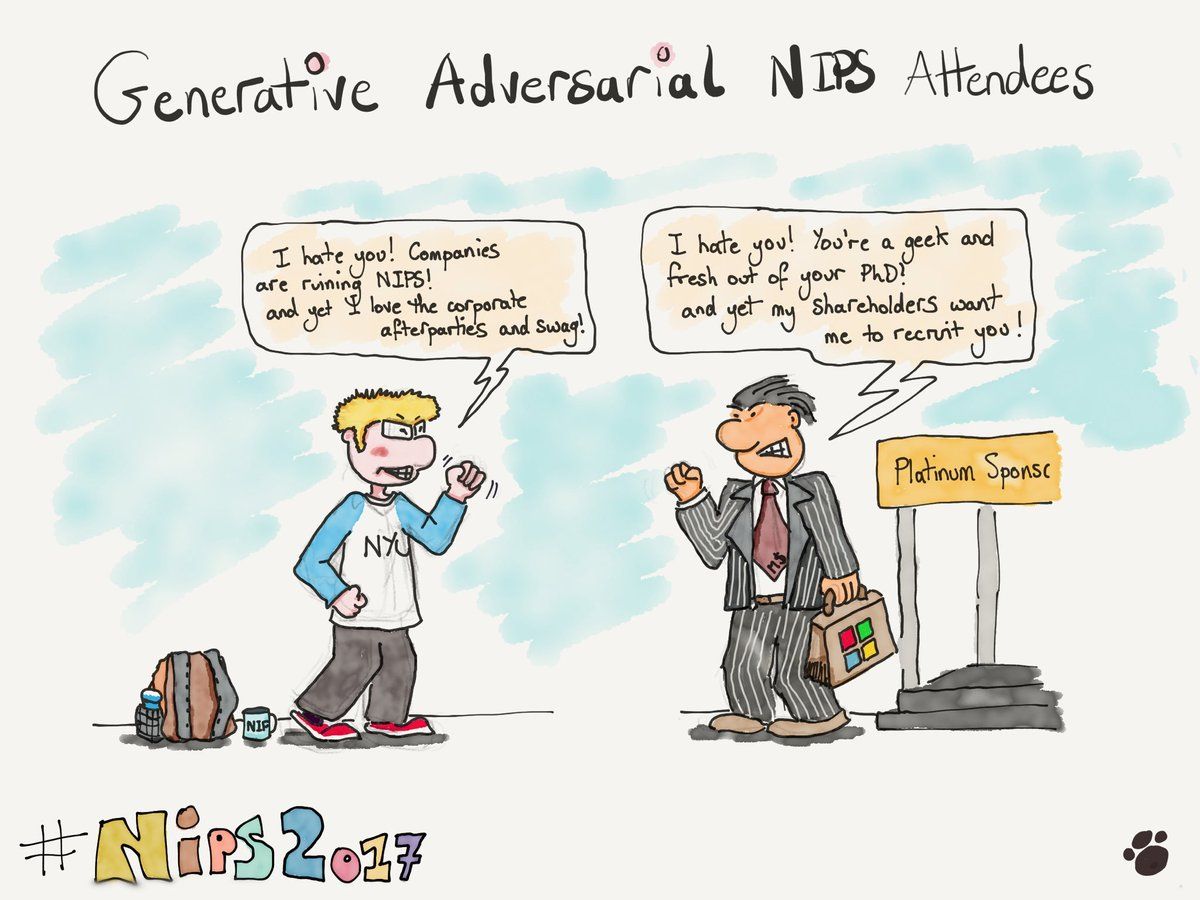 Generative Adversarial NIPS Attendees
I hate you! Companies
are ruining NIPS!
and yet I love the corporate
afterparties and swag!
I hate you! You're a geek and
fresh out of your PhD?
and yet my shareholders want
me to recruit you!
Platinum Sponsc
NYU
M$
NIP
#Nips2017